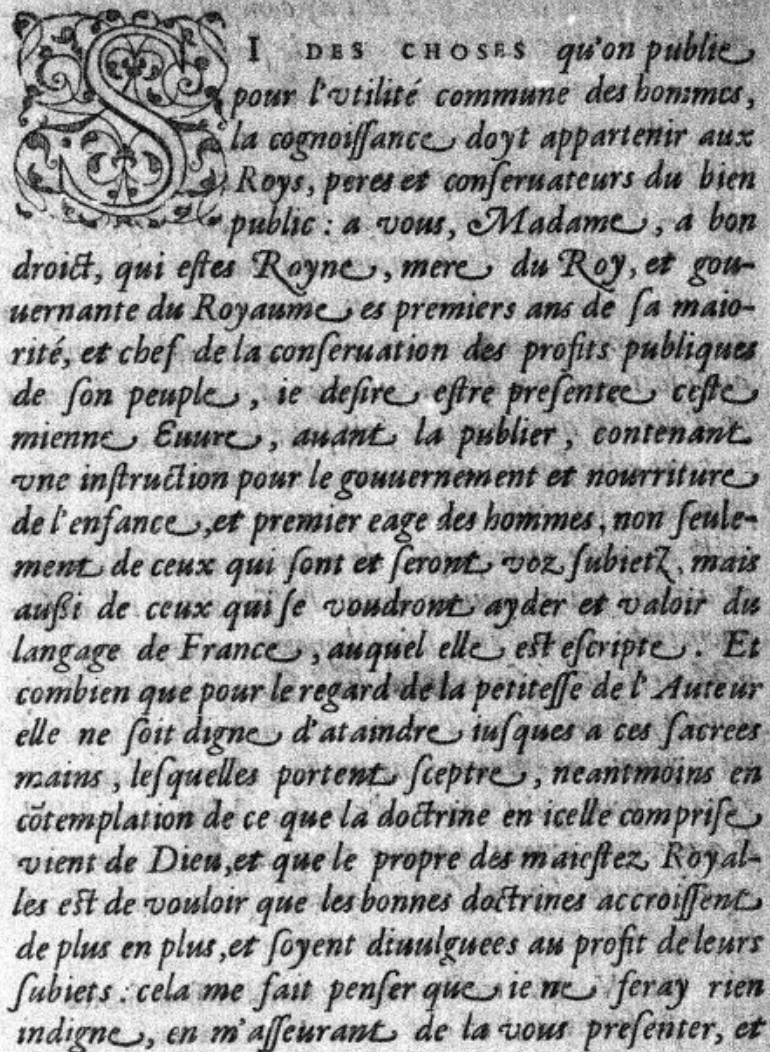 SI DES CHOSES qu'on publie
pour l'vtilité commune des hommes,
la cognoiſſance doyt appartenir aux
Roys, peres et conſeruateurs du bien
public : a vous, Madame, a bon
droict, qui eſtes Royne, mere du Roy, et gou-
uernante du Royaume es premiers ans de ſa maio-
rité, et chef de la conſeruation des profits publiques
de ſon peuple, ie deſire eſtre preſentee ceſte
mienne Euure, auant la publier, contenant
vne inſtruction pour le gouuernement et nourriture
de l'enfance, et premier eage des hommes, non ſeule-
ment de ceux qui ſont et ſeront voz ſubietz, mais
außi de ceux qui ſe voudront ayder et valoir du
langage de France, auquel elle eſt eſcripte. Et
combien que pour le regard de la petiteſſe de l'Auteur
elle ne ſoit digne d'ataindre iuſques a ces ſacrees
mains, leſquelles portent ſceptre, neantmoins en
cõtemplation de ce que la doctrine en icelle compriſe
vient de Dieu, et que le propre des maieſtez Royal-
les eſt de vouloir que les bonnes doctrines accroiſſent
de plus en plus, et ſoyent diuulguees au profit de leurs
ſubiets : cela me fait penſer que ie ne feray rien
indigne, en m'aſſeurant de la vous preſenter, et